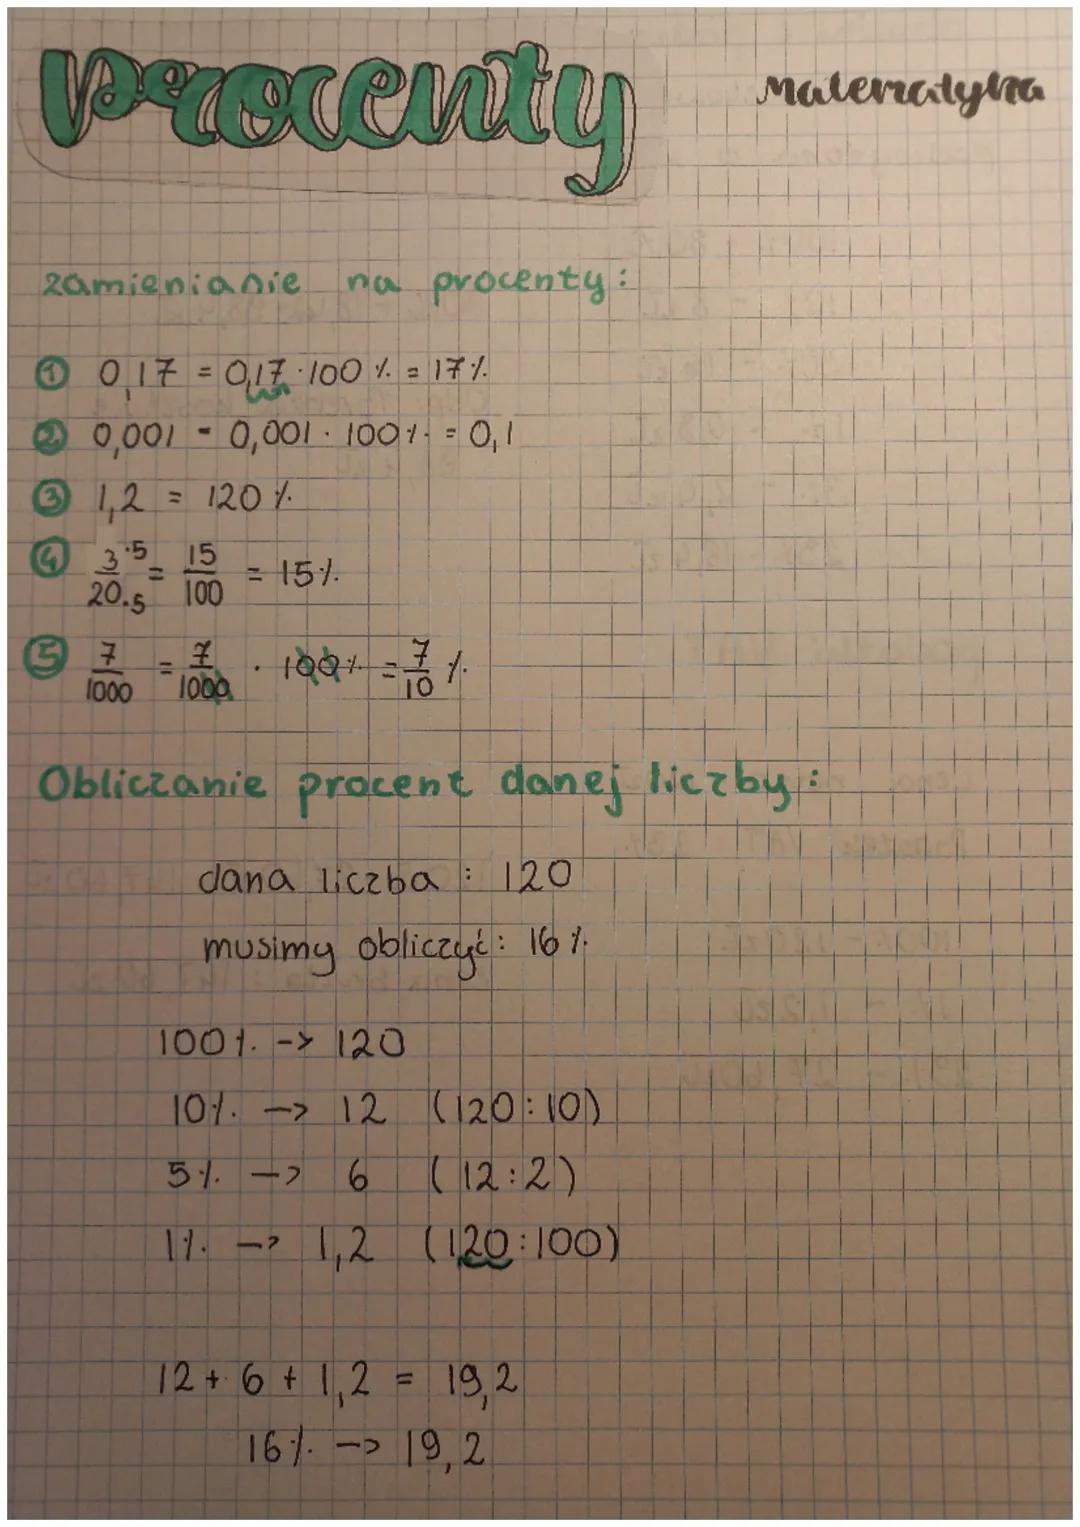 Procenty
Matematyka
zamienianie na procenty:
① 0,17 = 0,17 · 100 % = 17 %
② 0,001 - 0,001 · 100 % = 0,1
③ 1,2 = 120 %
④ 3·5/20·5 = 15/100 = 15 %
⑤ 7/1000 = 7/1000 · 100 % = 7/10 %
Obliczanie procent danej liczby:
dana liczba : 120
musimy obliczyć: 16 %
100 % -> 120
10 % -> 12 (120 : 10)
5 % -> 6 (12 : 2)
1 % -> 1,2 (120 : 100)
12 + 6 + 1,2 = 19,2
16 % -> 19,2